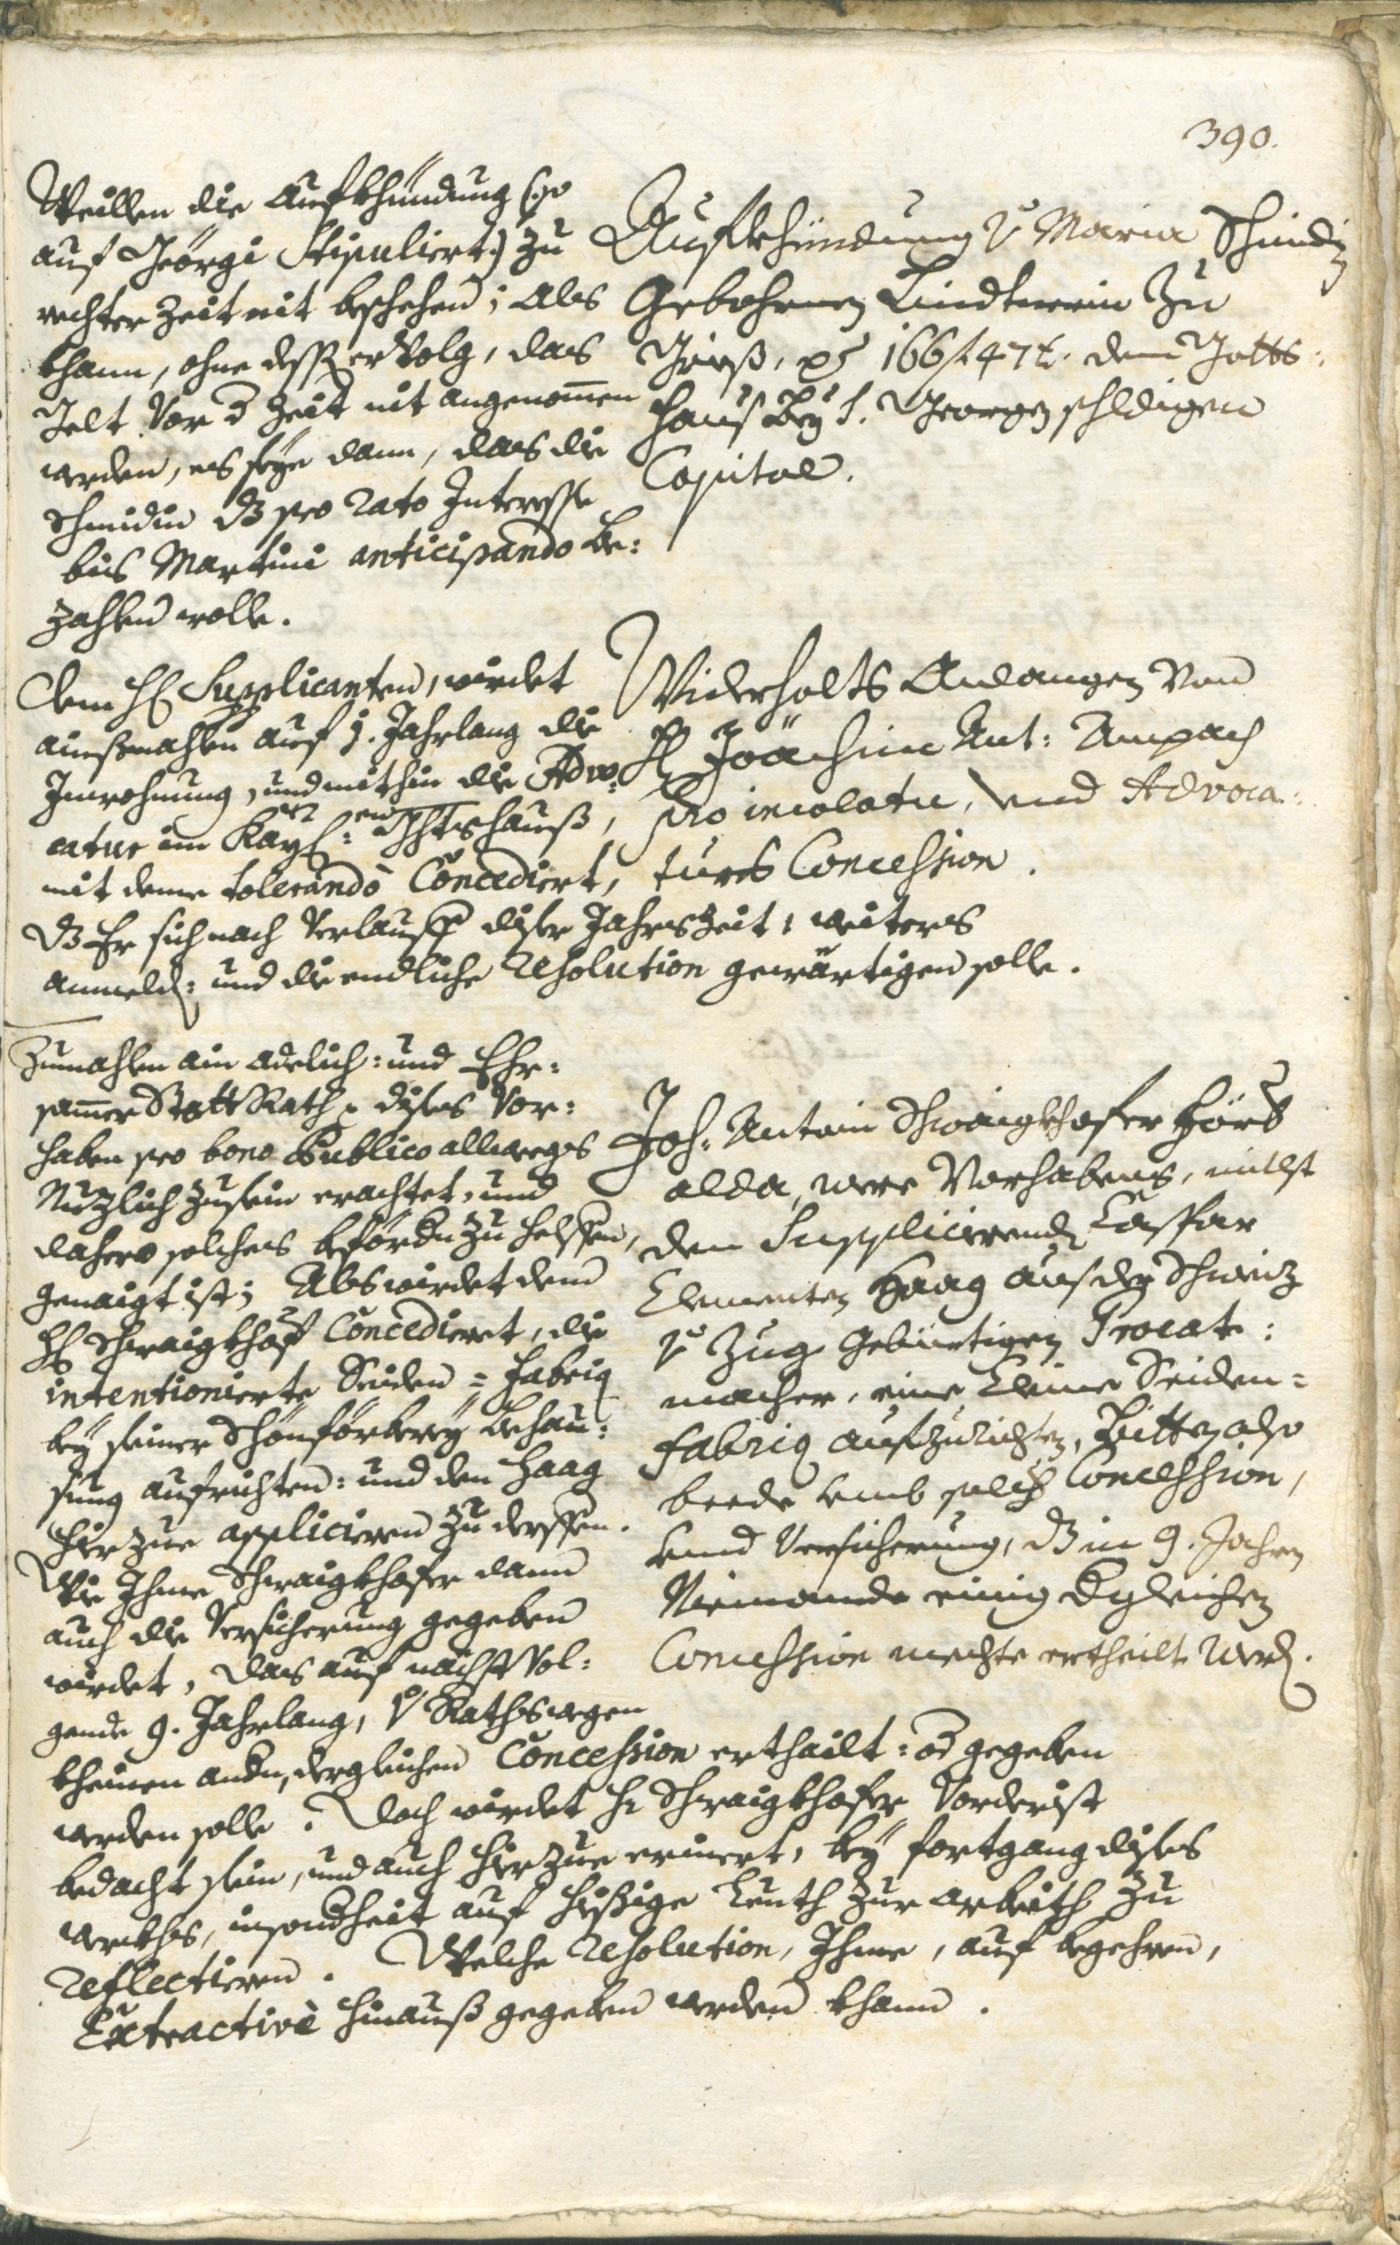 390.
Weillen die Aufkhündung (: so
auf Geörgi Stipuliert :) zu
rechter Zeit nit beschehen; Als
khann, ohne dessen ervolg, das
Gelt vor d Zeit nit angenommen
werden, es seye dann, das die
Schmidin dz pro rato Interesse
bis Martini anticipando be:
zahlen wolle.
Aufkhündung v Maria Schmidin
Gebohrnen Lindtnerin zu
Grieß, p 166 f 47 x. dem Gotts:
haus bey S. Georgen schldigen
Capital.
Dem H Supplicanten, wirdet
ainßmahlen auf j. Jahrlang die
Inwohnung, und mithin die Advo:
catur im Kay: Ambtshauß,
mit deme tolerando Concediert,
dz Er sich nach Verlauff diser Jahrszeit, weiters
anmeld: und die endliche resolution gewärtigen solle.
Widerholts Anlangen von
H Joachim Ant: Ampach
pro incolatu, und Advoca:
turs Concession.
Zumahlen ain adelich: und Ehr:
sammer Statt Rath, dises Vor:
haben pro bono Publico allweegs
Nuzlich zusein erachtet, und
dahero solches befördern zu helffen,
genaigt ist; Als wirdet dem
H Schwaigkhofer Concediert, die
intentionierte Seiden = fabriq
bey seiner Schönförberey behau:
sung aufrichten: und den Haag
hierzue applicieren zu derffen.
Wie Ihme Schwaigkhofer dann
auch die Versicherung gegeben
wirdet, das auf nächst Vol:
gende 9. Jahrlang, v Rathswegen
kheinen andern, dergleichen Concession erthailt: od gegeben
werden solle. Doch wirdet H Schwaigkhofer Vorderist
bedacht sein, und auch hierzue erinert, bey fortgang dises
werkhs, insondheit auf hießige Leuth zur arbeith zu
reflectieren. Welche resolution, Ihme, auf begehren,
Extractivè hinauß gegeben werden khann.
Joh: Antoni Schwaigkhofer Förb
alda, were Vorhabens, mitlst
den Supplicirenden Casspar
Clementen Haag aus der Schweiz
v Zug Gebürtigen Procat:
macher, eine kleine Seiden=
fabriq aufzurichten, Bitten also
beede umb solche Concession,
unnd Versicherung, dz in 9. Jahren
Niemande einig dgleichen
Concession mechte ertheilt werd.